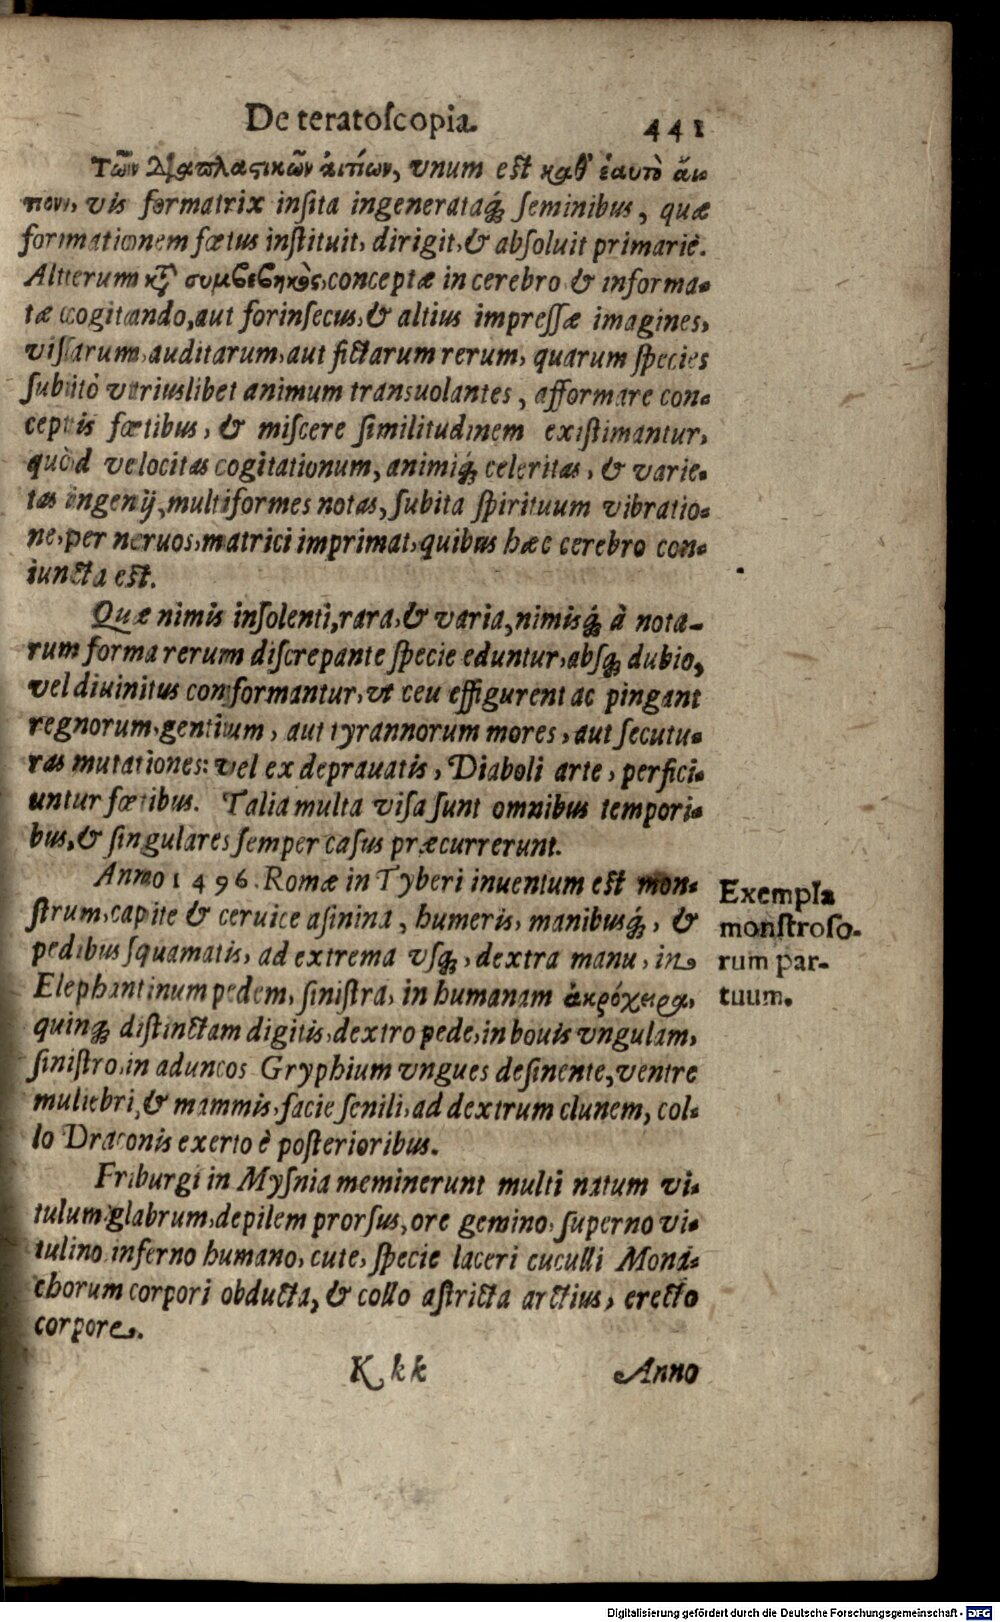 De teratoſcopia. 441
Τῶν διαπλαςικῶν ἀιτίων, vnum eſt καθ' ἑαυτὸ ἄι-
τιον, vis formatrix inſita ingenerataq́; ſeminibus, quæ
formationem fœtus inſtituit, dirigit, & abſoluit primariè.
Alterum κτ̃ συμβεβηκὸς, conceptæ in cerebro & informa-
tæ cogitando, aut forinſecus, & altius impreſſæ imagines,
viſarum, auditarum, aut fictarum rerum, quarum ſpecies
ſubitò vtriuslibet animum transuolantes, afformare con-
ceptis fœtibus, & miſcere ſimilitudinem exiſtimantur,
quòd velocitas cogitationum, animiq́; celeritas, & varie-
tas ingenij, multiformes notas, ſubita ſpirituum vibratio-
ne, per neruos, matrici imprimat, quibus hæc cerebro con-
iuncta eſt.
Quæ nimis inſolenti, rara, & varia, nimisq́; à nota-
rum forma rerum diſcrepante ſpecie eduntur, absq; dubio,
vel diuinitus conformantur, vt ceu effigurent ac pingant
regnorum, gentium, aut tyrannorum mores, aut ſecutu-
ras mutationes: vel ex deprauatis, Diaboli arte, perfici-
untur fœtibus. Talia multa viſa ſunt omnibus tempori-
bus, & ſingulares ſemper caſus præcurrerunt.
Anno 1496. Romæ in Tyberi inuentum eſt mon-
ſtrum, capite & ceruice aſinina, humeris, manibusq́;, &
pedibus ſquamatis, ad extrema vſq;, dextra manu, in
Elephantinum pedem, ſiniſtra, in humanam ἀκρόχειρα,
quinq; diſtinctam digitis, dextro pede, in bouis vngulam,
ſiniſtro, in aduncos Gryphium vngues deſinente, ventre
muliebri, & mammis, facie ſenili, ad dextrum clunem, col-
lo Draconis exerto è poſterioribus.
Exempla
monſtroſo-
rum par-
tuum.
Friburgi in Myſnia meminerunt multi natum vi-
tulum glabrum, depilem prorſus, ore gemino, ſuperno vi-
tulino inferno humano, cute, ſpecie laceri cuculli Mona-
chorum corpori obducta, & collo aſtricta arctius, erecto
corpore.
Kkk Anno
Digitalisierung gefördert durch die Deutsche Forschungsgemeinschaft - DFG